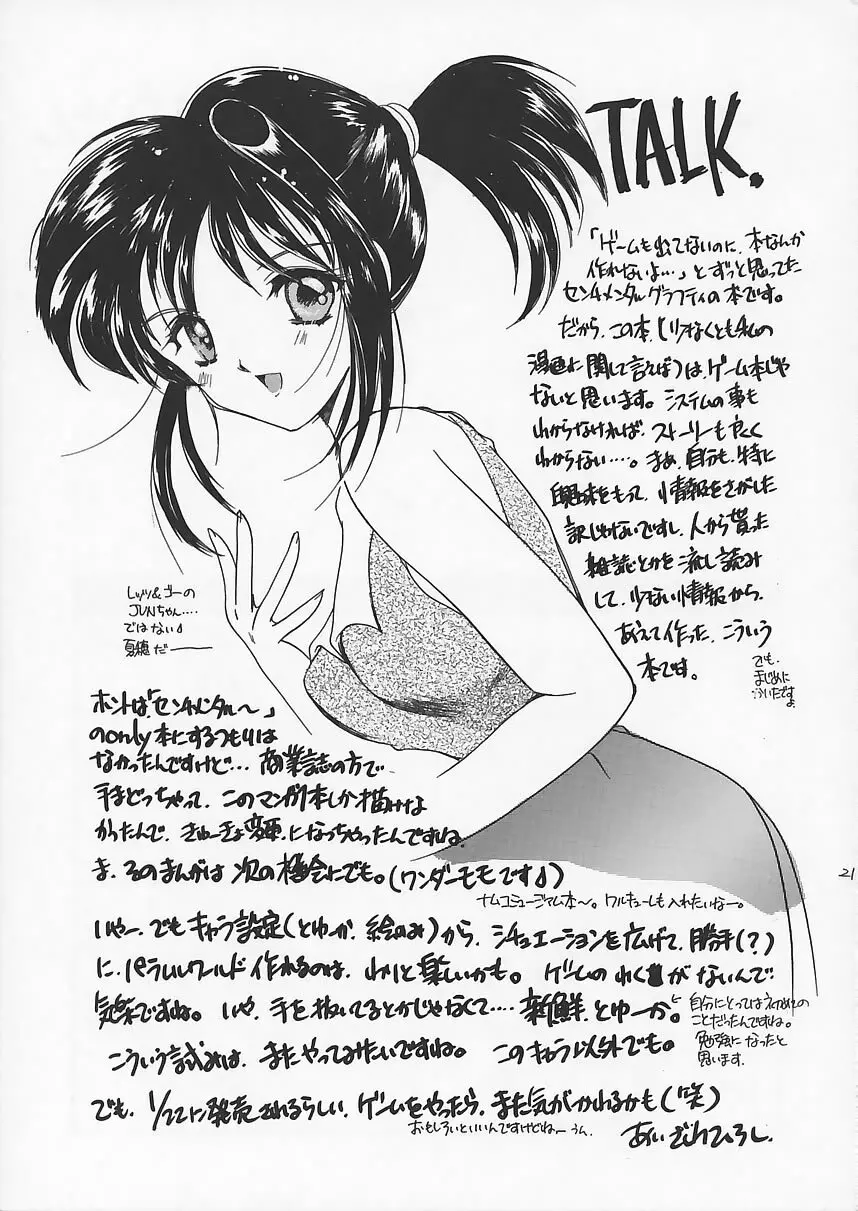 TALK.
「ゲームも出てないのに、本なんか
作れないよ…」とずっと思ってた
センチメンタルグラフティの本です。
だから、この本、(少なくとも私の
漫画に関して言えば)は、ゲーム本じゃ
ないと思います。システムの事も
わからなければ、ストーリーも良く
わからない…。まぁ、自分も、特に
興味をもって、情報をさがした
訳じゃないですし、人から貰った
雑誌とかを流し読み
して、少ない情報から、
あえて作った、こういう
本です。
でも、
まじめに
つくったですよ
レッツ&ゴーの
JUNちゃん….
ではない♪
夏穂だー
ホントは「センチメンタル〜」
のonly本にするつもりは
なかったんですけど… 商業誌の方で
手まどっちゃって、このマンガ1本しか描けな
かったんで、きゅーきょ変更、になっちゃったんですね。
ま、そのまんがは次の機会にでも。(ワンダーモモです♪)
ナムコミュージアム本〜。ワルキューレも入れたいなー。
いやー、でもキャラ設定(とゆーか、絵のみ)から、シチュエーションを広げて、勝手(?)
に、パラレルワルド作れるのは、わりと楽しいかも。ゲームのわくがないんで
気楽ですね。いや、手を抜いてるとかじゃなくて….新鮮、とゆーか。
自分にとっては初めての
ことだったんですね。
勉強になったと
思います。
こういう試みは、またやってみたいですね。このキャラ以外でも。
でも、1/22に発売されるらしい、ゲームをやったら、また気がかわるかも(笑)
おもしろいといいんですけどねーうん。
あいざわひろし
21